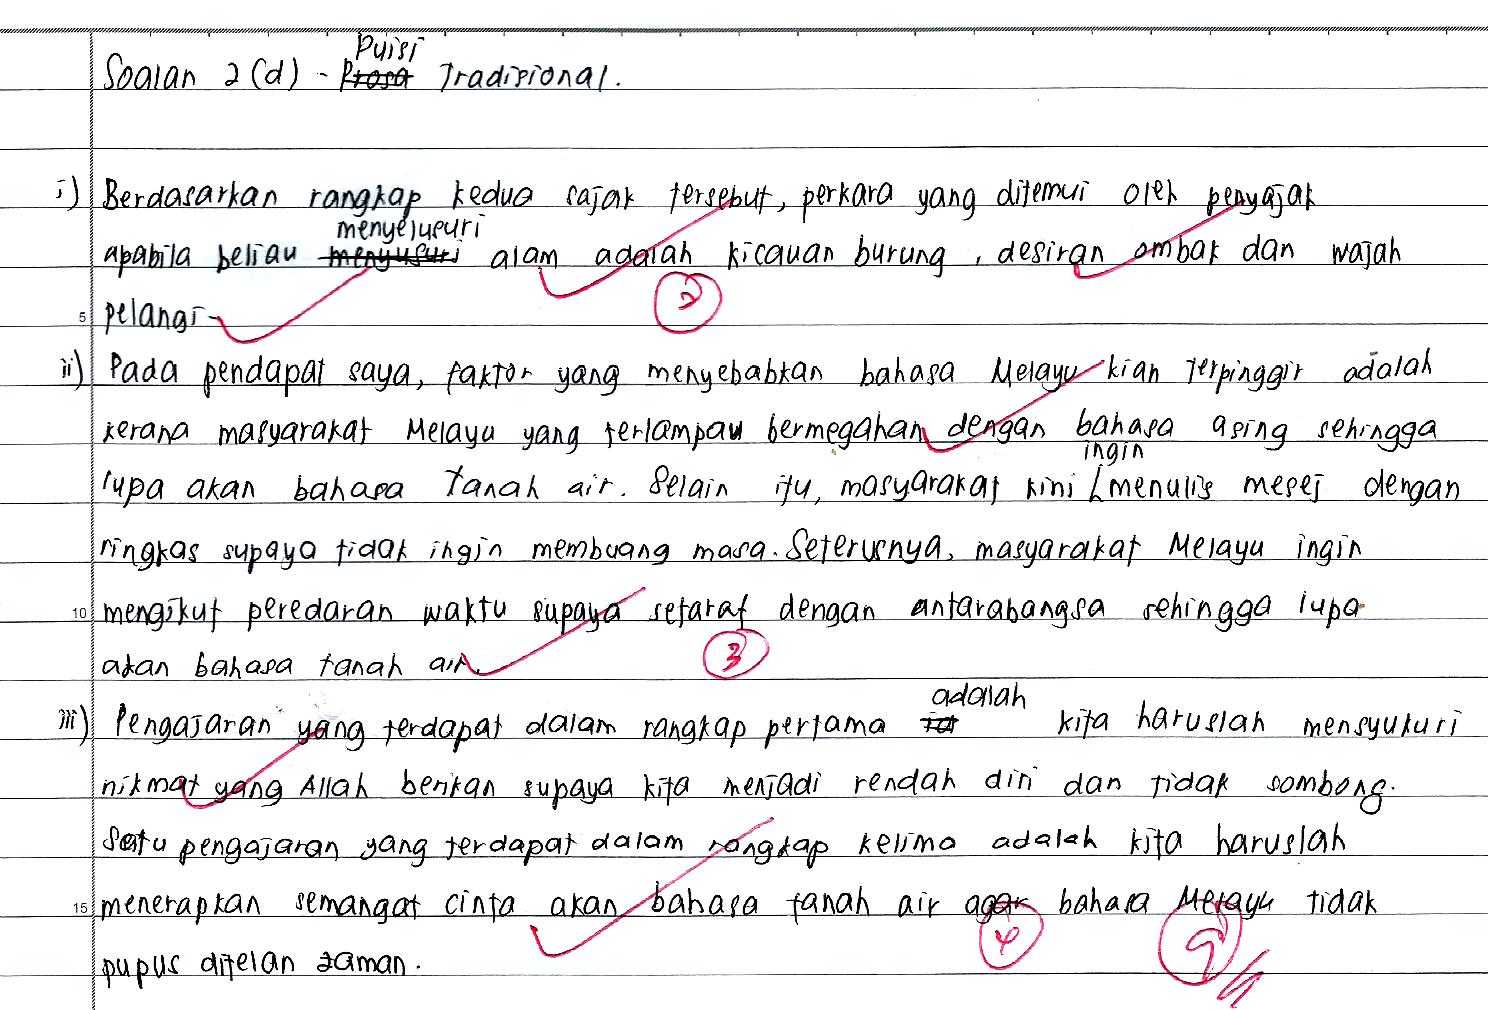 Puisi
Soalan 2 (d) - Prosa Tradisional.
i) Berdasarkan rangkap kedua sajak tersebut, perkara yang ditemui oleh penyajak
menyelusuri
apabila beliau menyusuri alam adalah kicauan burung, desiran ombak dan wajah
2
5 pelangi.
ii) Pada pendapat saya, faktor yang menyebabkan bahasa Melayu kian terpinggir adalah
kerana masyarakat Melayu yang terlampau bermegahan dengan bahasa asing sehingga
ingin
lupa akan bahasa tanah air. Selain itu, masyarakat kini menulis mesej dengan
ringkas supaya tidak ingin membuang masa. Seterusnya, masyarakat Melayu ingin
10 mengikut peredaran waktu supaya setaraf dengan antarabangsa sehingga lupa
akan bahasa tanah air.
3
adalah
iii) Pengajaran yang terdapat dalam rangkap pertama kita haruslah mensyukuri
nikmat yang Allah berikan supaya kita menjadi rendah diri dan tidak sombong.
Satu pengajaran yang terdapat dalam rangkap kelima adalah kita haruslah
15 menerapkan semangat cinta akan bahasa tanah air agar bahasa Melayu tidak
4
9
pupus ditelan zaman.